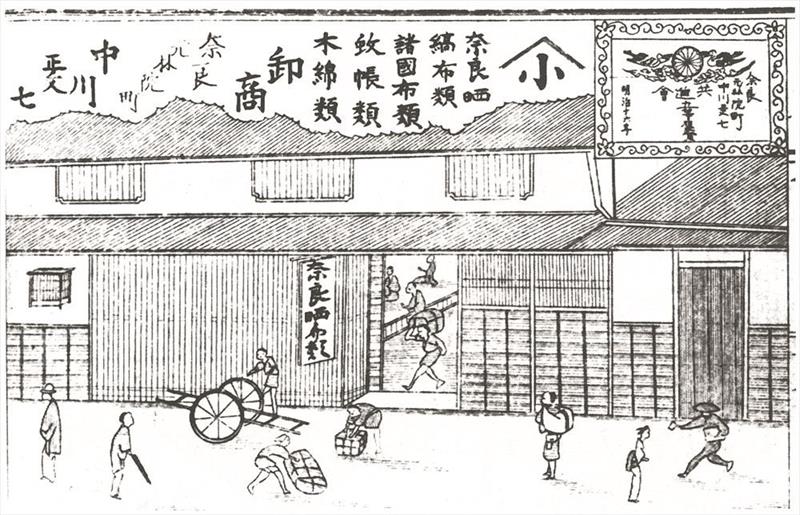 奈良
元林院町
中川政七
共進會
明治十六年
小
奈良晒
縞布類
諸國布類
蚊帳類
木綿類
卸商
奈良
元林院町
中川
政七
奈良晒布類